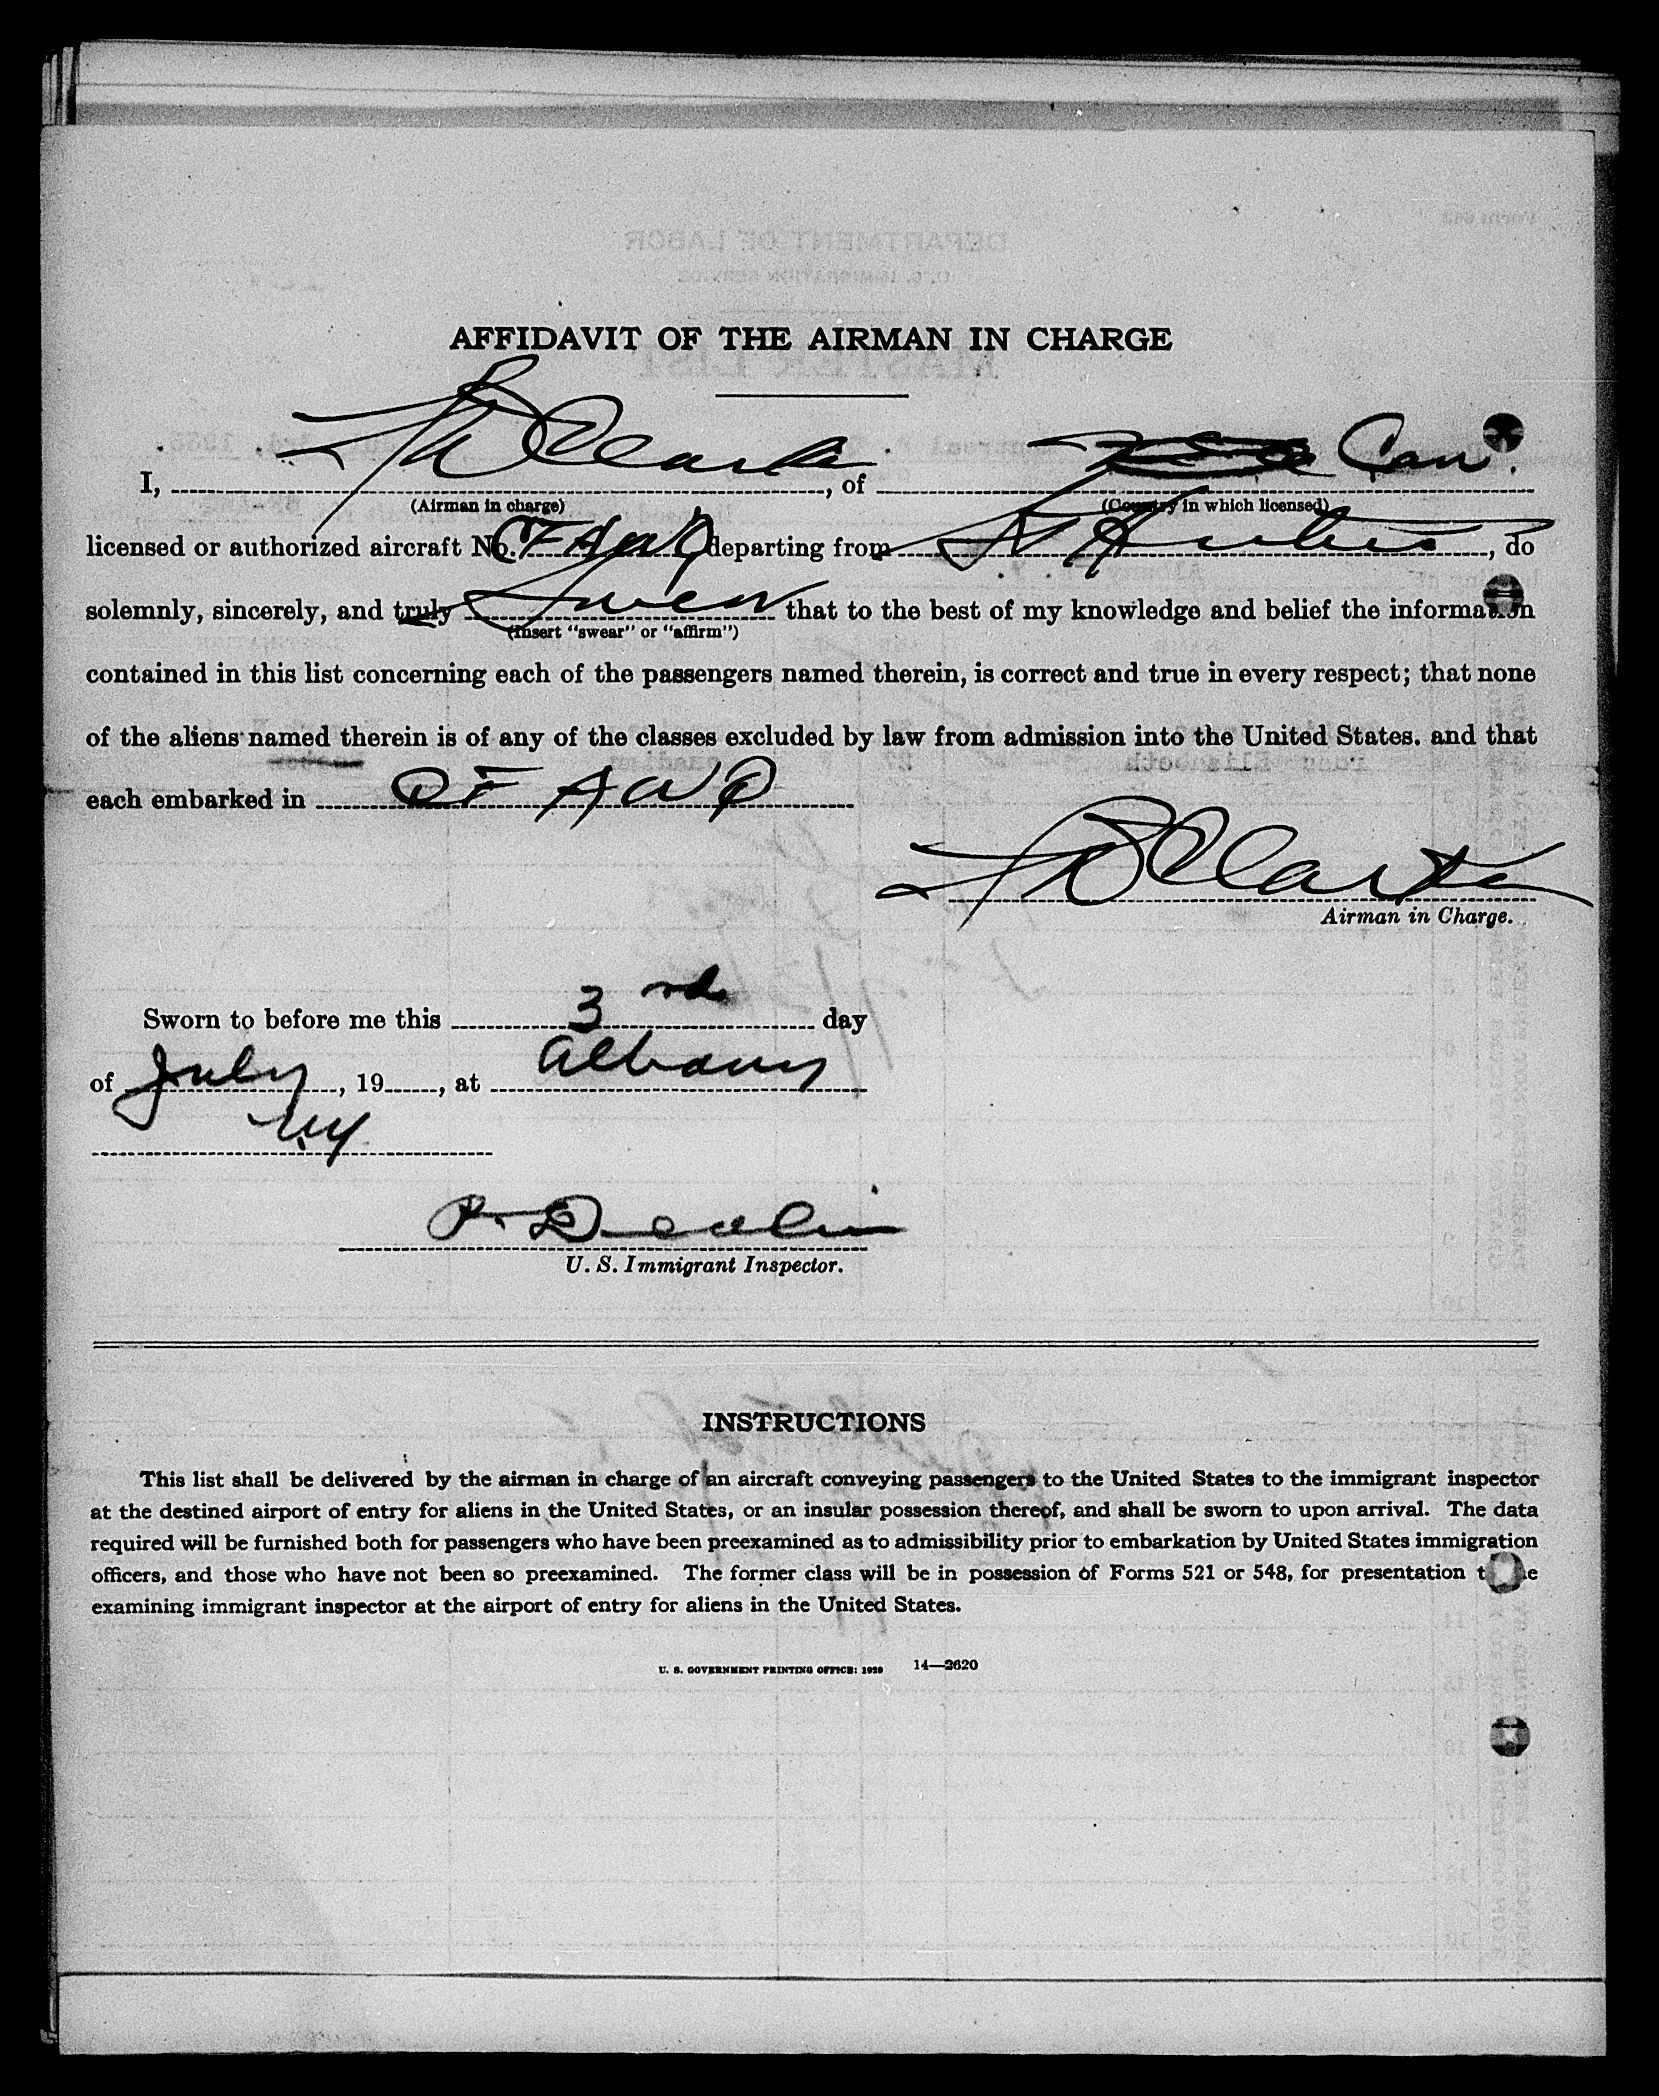 AFFIDAVIT OF THE AIRMAN IN CHARGE
I, Clarke, of Can.
(Airman in charge) (Country in which licensed)
licensed or authorized aircraft No. CF AWQ departing from St Hubert, do
solemnly, sincerely, and truly Swear that to the best of my knowledge and belief the information
(Insert "swear" or "affirm")
contained in this list concerning each of the passengers named therein, is correct and true in every respect; that none
of the aliens named therein is of any of the classes excluded by law from admission into the United States. and that
each embarked in CF AWQ
Clarke
Airman in Charge.
Sworn to before me this 3rd day
of July, 19, at Albany
NY
U. S. Immigrant Inspector.
INSTRUCTIONS
This list shall be delivered by the airman in charge of an aircraft conveying passengers to the United States to the immigrant inspector
at the destined airport of entry for aliens in the United States, or an insular possession thereof, and shall be sworn to upon arrival. The data
required will be furnished both for passengers who have been preexamined as to admissibility prior to embarkation by United States immigration
officers, and those who have not been so preexamined. The former class will be in possession of Forms 521 or 548, for presentation to the
examining immigrant inspector at the airport of entry for aliens in the United States.
U. S. GOVERNMENT PRINTING OFFICE: 1929 14—2620